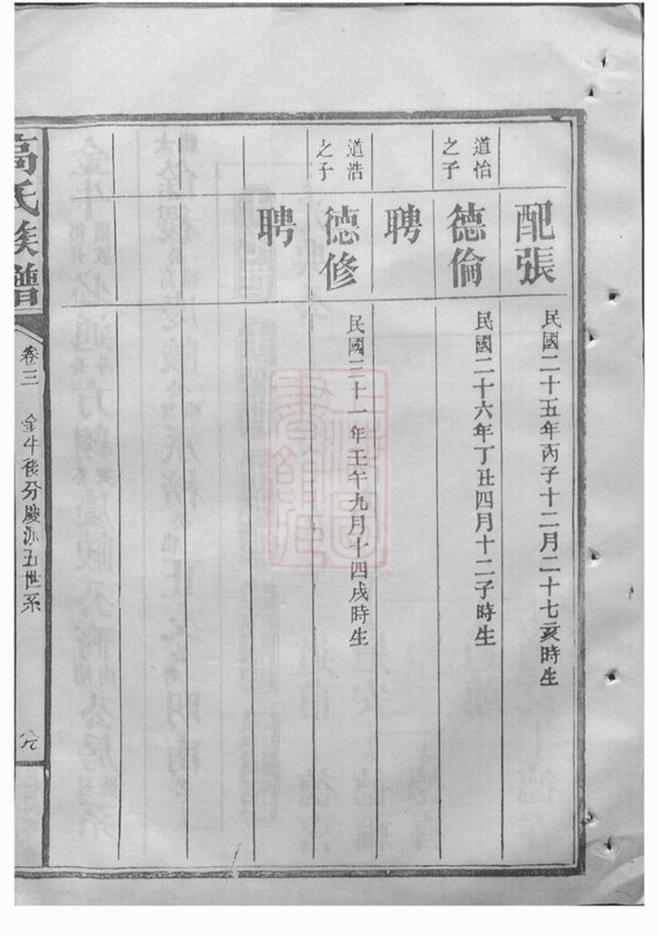 配張
民國二十五年丙子十二月二十七亥時生
道怡之子
德倫
民國二十六年丁丑四月十二子時生
聘
道浩之子
德修
民國三十一年壬午九月十四戌時生
聘
高氏族譜
卷三
金牛後分慶派五世系